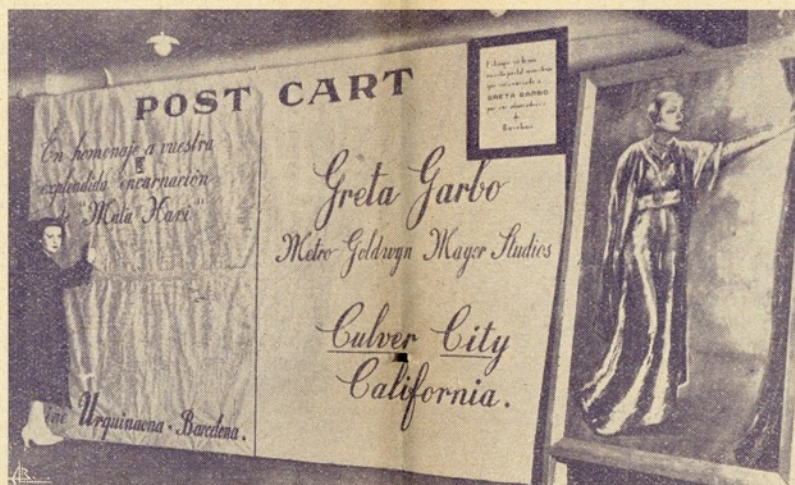 POST CART
En homenaje a vuestra
explendida encarnación
de "Mata Hari"
Urquinaona - Barcelona.
Greta Garbo
Metro Goldwyn Mayer Studios
Culver City
California.
GRETA GARBO
por sus admiradores
de
Barcelona